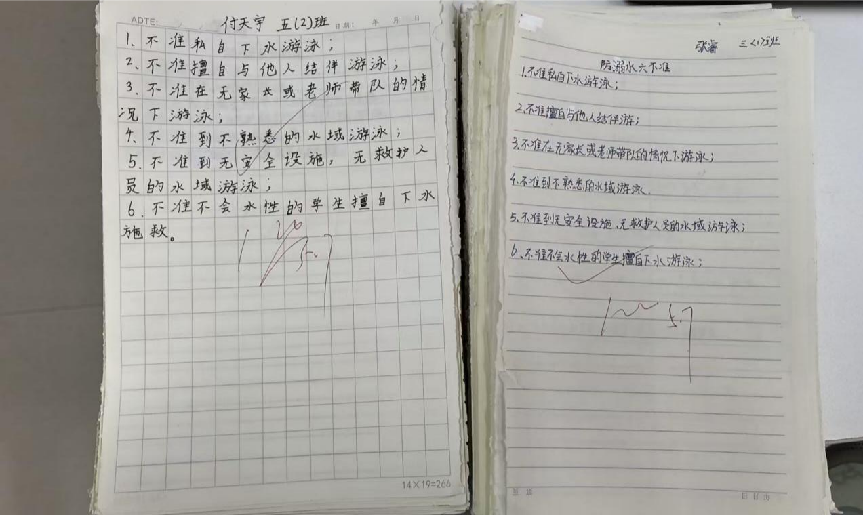 ADTE:
付天宇 五(2)班
日期: 年 月 日
1、不准私自下水游泳;
2、不准擅自与他人结伴游泳;
3、不准在无家长或老师带队的情
况下游泳;
4、不准到不熟悉的水域游泳;
5、不准到无安全设施,无救护人
员的水域游泳;
6、不准不会水性的学生擅自下水
施救。
100
5.7
14×19=266
三(1)班
防溺水六不准
1.不准私自下水游泳;
2.不准擅自与他人结伴游;
3.不准在无家长或老师带队的情况下游泳;
4.不准到不熟悉的水域游泳.
5.不准到无安全设施、无救护人员的水域游泳;
6.不准不会水性的学生擅自下水游泳;
100
5.7